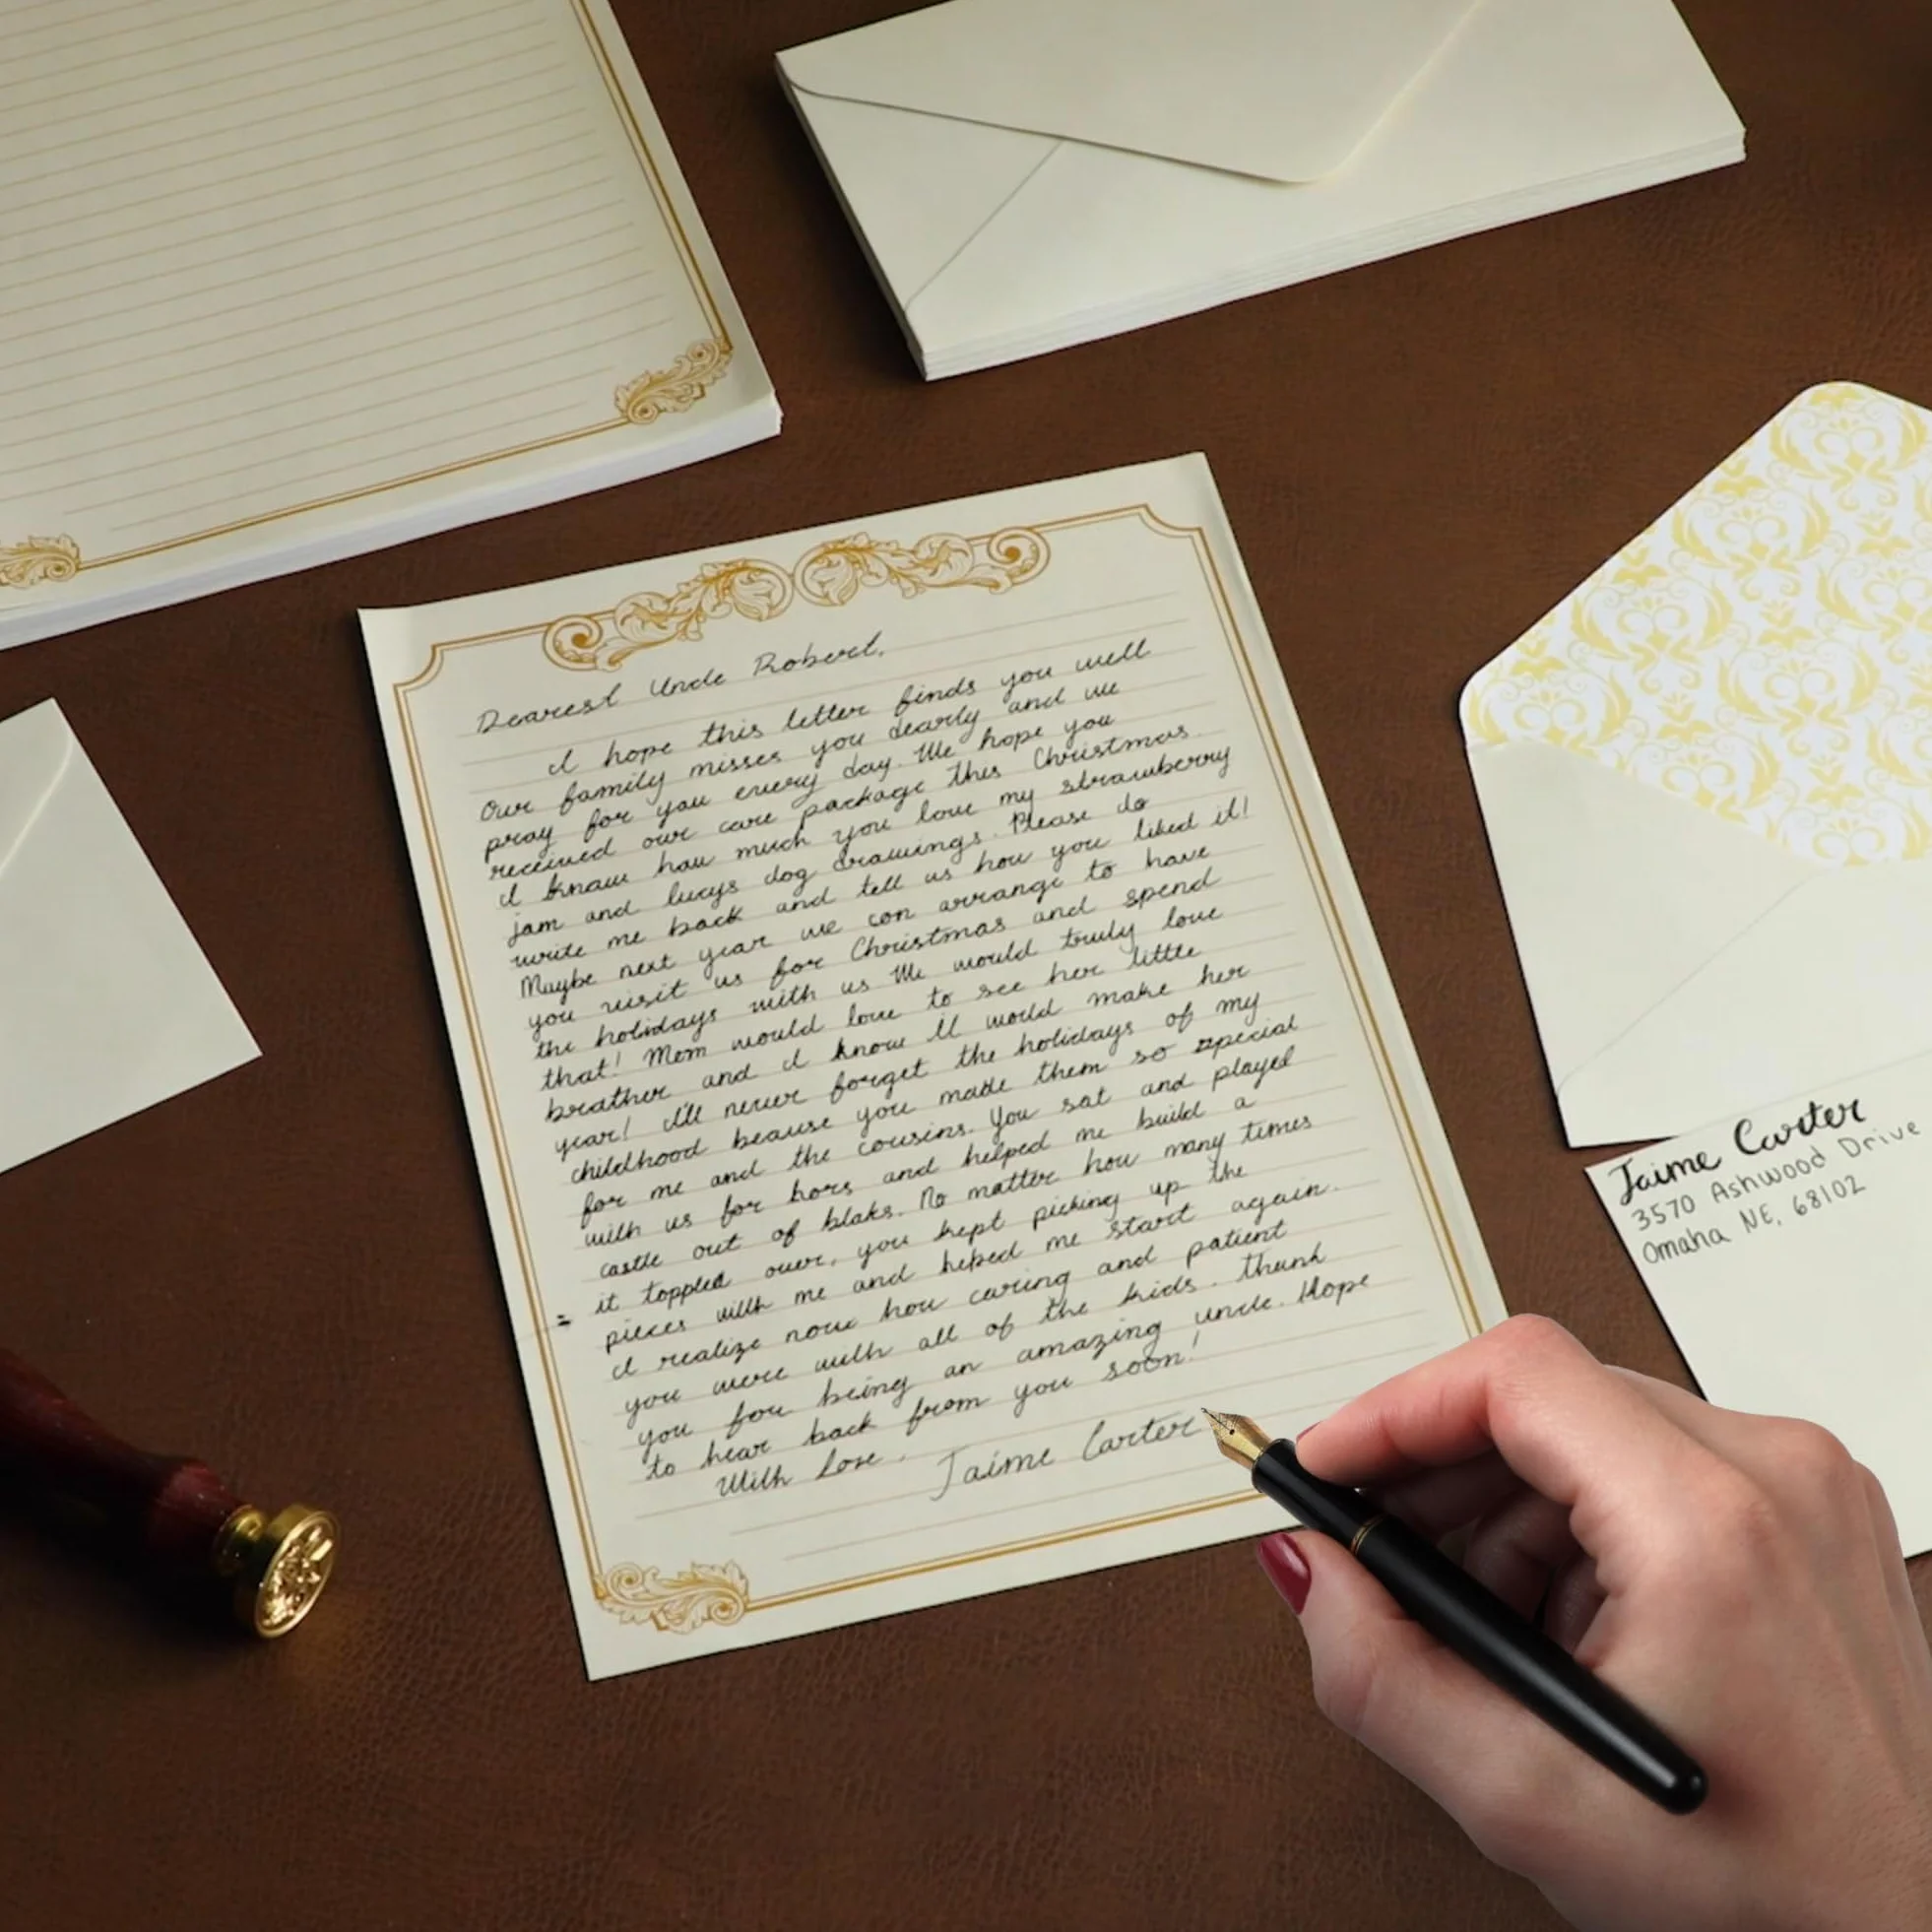 Dearest Uncle Robert,
I hope this letter finds you well
Our family misses you dearly and we
pray for you every day. We hope you
received our care package this Christmas.
I know how much you love my strawberry
jam and lucys dog drawings. Please do
write me back and tell us how you liked it!
Maybe next year we can arrange to have
you visit us for Christmas and spend
the holidays with us We would truly love
that! Mom would love to see her little
brother and I know it would make her
year! I'll never forget the holidays of my
childhood beause you made them so special
for me and the cousins. You sat and played
with us for hors and helped me build a
castle out of bloks. No matter how many times
it toppled over, you kept picking up the
pieces with me and helped me start again.
I realize now how caring and patient
you were with all of the kids. Thank
you for being an amazing uncle. Hope
to hear back from you soon!
With Love.
Jaime Carter
Jaime Carter
3570 Ashwood Drive
Omaha NE, 68102